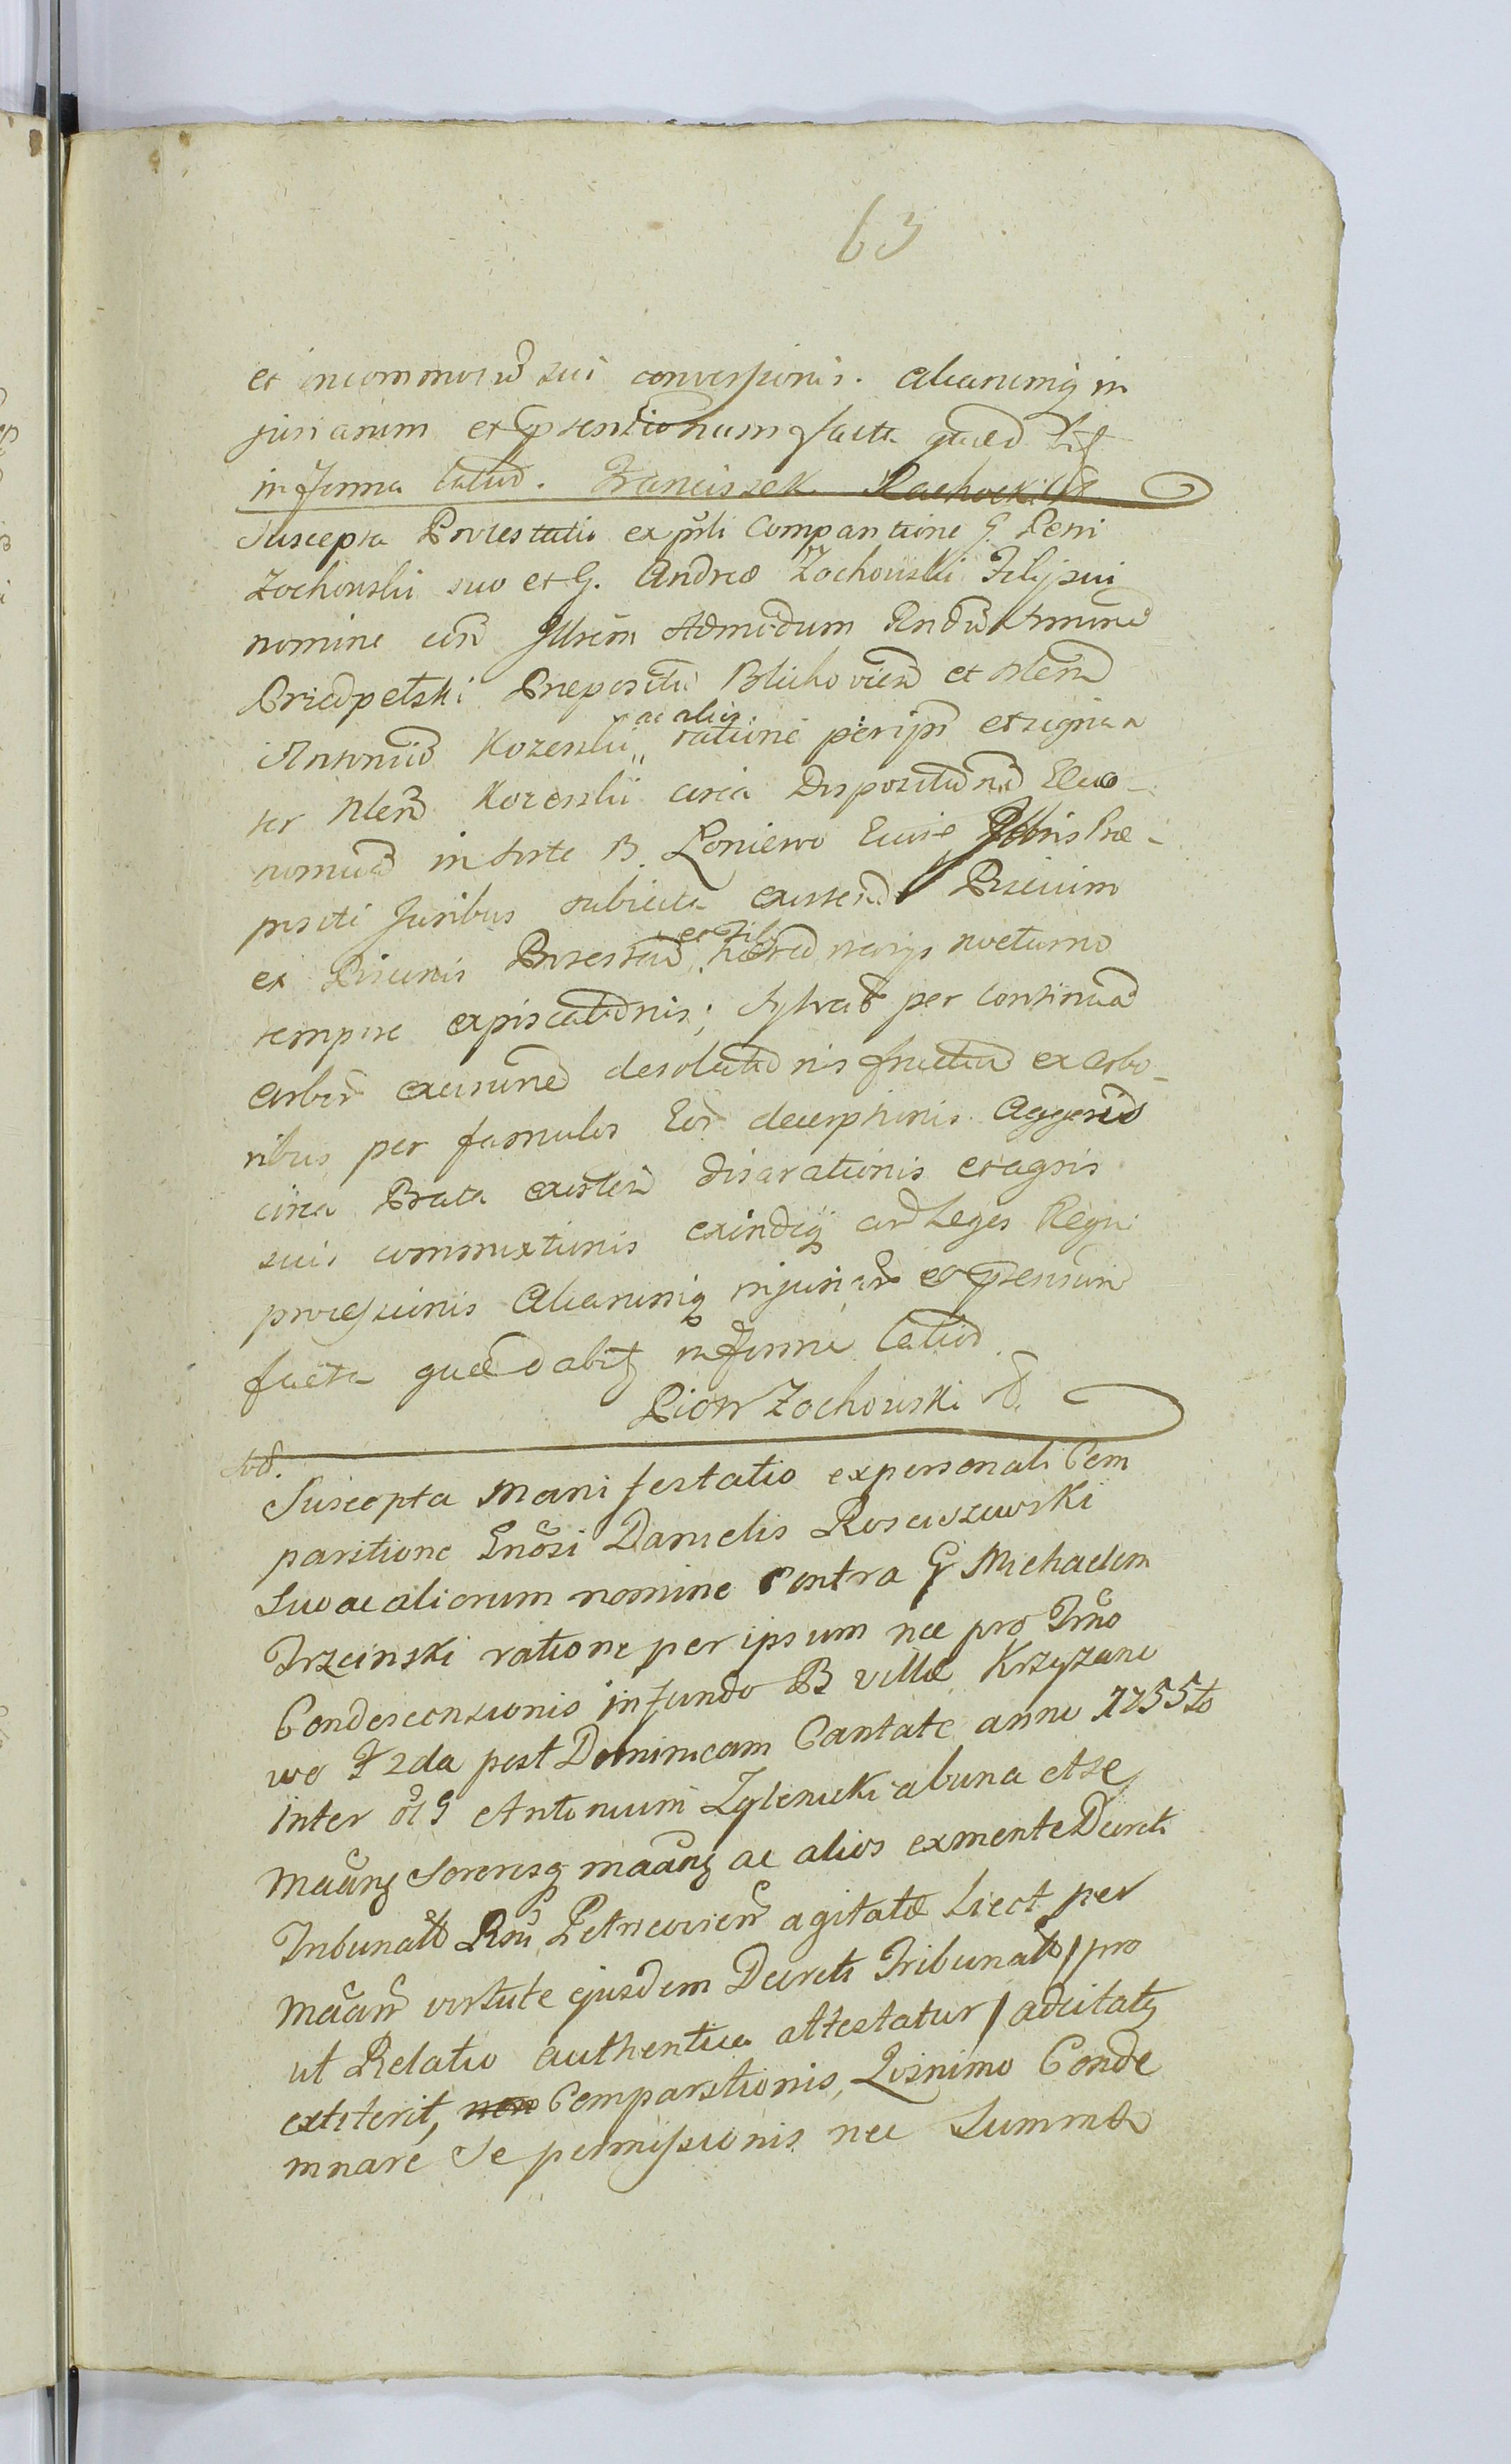 63
et incommod sui conversionis. aliarumq in
juriarum et Eptensionum facta quæd Lit
in forma Latiū. Franciszek Rachocki
Suscepta Protestatio ex psli Comparitione G. Petri
Zochowski suo et G. Andreæ Zochowski Filij sui
nomine con Jllrem Admodum Rndū
Præpositū et Nlem
Antoniū Kozerski ac alios ratione per ips et signan
ter Nlem Kozerski circa Dispositionē Œco-
nomicā in sorte B. Loniewo Jllris Præ-
positi Juribus subiecta existen Piscium
ex Piscinis et varijs nocturno
tempore expiscationis; Sylvar per continuā
arbor excisionē desolationis fructuū ex arbo-
ribus per famulos Eor decerptionis Aggeris
circa Prata existen disarationis et agris
suis commixtionis exindeq ad Leges Regni
processionis Aliarumq injuriar et Eptensionū
facta quæ dabit in forma Latiū.
Piotr Zochowski
Suscepta Manifestatio ex personali Com
paritione Gnosi Danielis Rosciszewski
Suo ac aliorum nomine Contra G Michaelem
Trzcinski ratione per ipsum nec pro Trno
Condescensionis in fundo B villæ Krzyzano
wo F 2da post Dominicam Cantate anni 1755to
inter G Antonium Zglenicki ab una et se
Maānq Sororesq maānq ac alios ex mente Decreti
Tribunalis Rni Petricovien agitatæ Licet per
Maān virtute ejusdem Decreti Tribunalis / pro
ut Relatio authentica attestatur / adcitatq
extiterit, non Comparitionis, Qvinimo Conde
mnare se permissionis nec Summæ